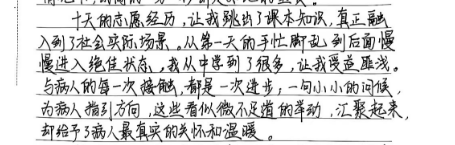 十天的志愿经历，让我跳出了课本知识，真正融
入到了社会实际场景。从第一天的手忙脚乱到后面慢
慢进入绝佳状态，我从中学到了很多，让我受益匪浅。
与病人的每一次接触，都是一次进步，一句小小的问候，
为病人指引方向，这些看似微不足道的举动，汇聚起来，
却给予了病人最真实的关怀和温暖。